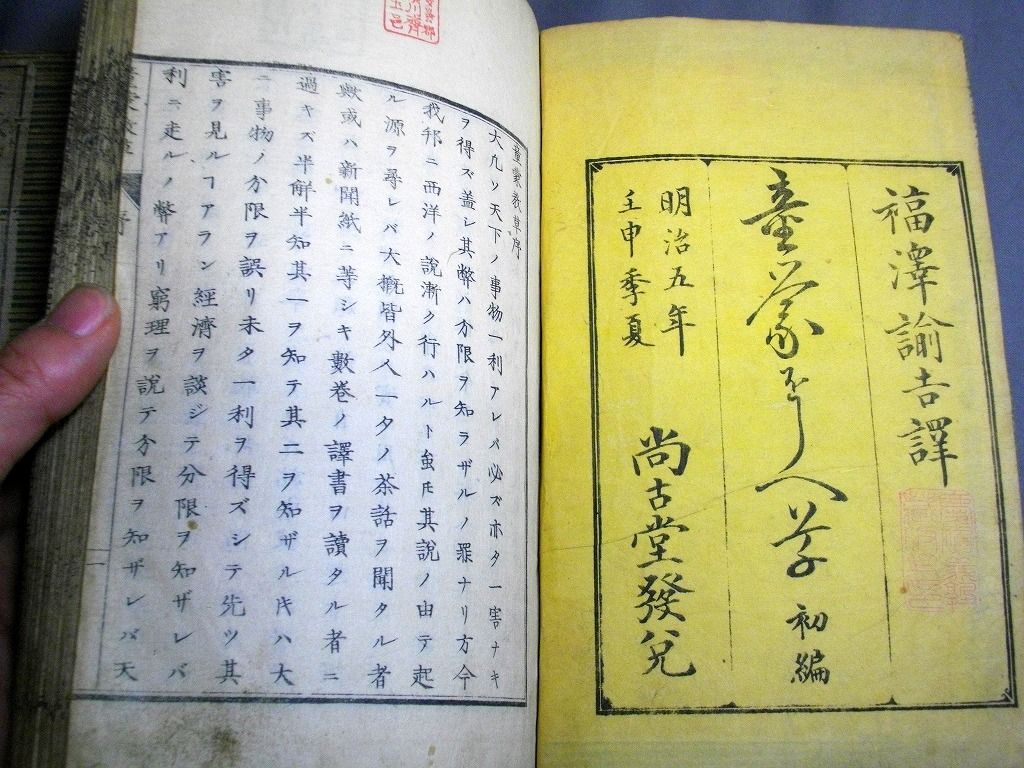 福澤諭吉譯
童蒙をしへ草 初編
明治五年
壬申季夏
尚古堂發兌
童蒙教草序
大凡ソ天下ノ事物一利アレバ必ズ亦タ一害ナキ
ヲ得ズ蓋シ其弊ハ分限ヲ知ラザルノ罪ナリ方今
我邦ニ西洋ノ說漸ク行ハルト虽𪜈其說ノ由テ起
ル源ヲ尋レバ大槪皆外人一夕ノ茶話ヲ聞タル者
歟或ハ新聞紙ニ等シキ數巻ノ譯書ヲ讀タル者ニ
過キズ半解半知其一ヲ知テ其二ヲ知ザル𪜈ハ大
ニ事物ノ分限ヲ誤リ未タ一利ヲ得ズシテ先ツ其
害ヲ見ルヿアラン經濟ヲ談ジテ分限ヲ知ザレバ
利ニ走ルノ弊アリ窮理ヲ說テ分限ヲ知ザレバ天
序
一